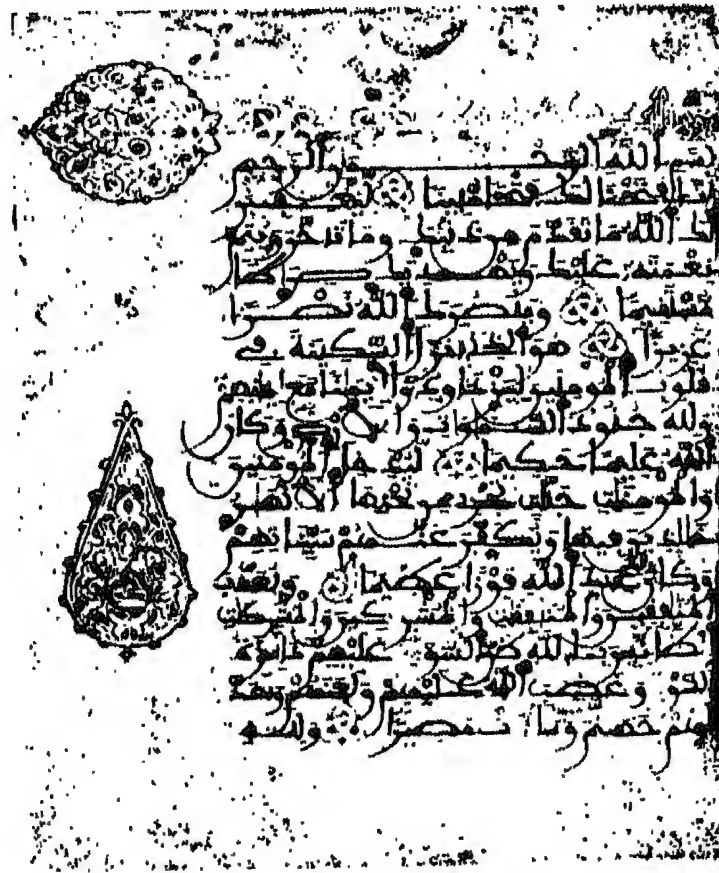 بسم الله الرحمن الرحيم
إنا فتحنا لك فتحا مبينا ليغفر
لك الله ما تقدم من ذنبك وما تأخر ويتم
نعمته عليك ويهديك صراطا
مستقيما وينصرك الله نصرا
عزيزا هو الذي أنزل السكينة في
قلوب المومنين ليزدادوا إيمانا مع إيمنهم
ولله جنود السموات والأرض وكان
الله عليما حكيما ليدخل المومنين
والمومنت جنت تجري من تحتها الأنهر
خلدين فيها ويكفر عنهم سيئاتهم
وكان ذلك عند الله فوزا عظيما ويعذب
المنفقين والمنفقت والمشركين والمشركت
الظانين بالله ظن السوء عليهم دائرة
السوء وغضب الله عليهم ولعنهم وأعد
لهم جهنم وساءت مصيرا ولله